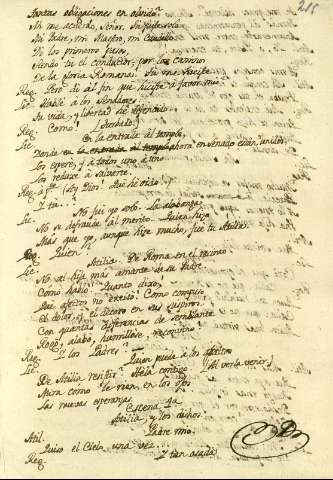 215
Tantas obligaciones en olvido?
Yo me acuerdo, Señor.
Mi Padre, mi Maestro, mi Caudillo
Di los primeros pasos,
siendo tu el conductor, por los caminos
De la gloria Romana. Tu me hiciste
Reg. Pero di al fin que hiciste á favor mio
Lic. Hablé á los Senadores,
Su vida, y libertad he defendido
Reg. Como? (Turbado)
Lic. En la entrada al templo,
Donde ahora en senado están unidos,
Los esperé, y á todos uno á uno
Los reduxe á salvarte.
Reg. áp.te (Ay Dios! Qué he oido!)
Y tu..?
Lic. No fui yo solo. La alabanza
No se defraude al merito. Quien hizo
Más que yo, aunque hice mucho, fue tu Atilia.
Reg. Quien?
Lic. Atilia. De Roma en el recinto
No hai hija más amante de su Padre
Como habló! Quanto dixo,
Que afectos no excitó! Como compuso
El dolor, y el decoro en sus suspiros.
Con quantas diferencias de semblante
Rogó, alabó, humillóse, reconvino
Reg. Y los Padres?
Lic. Quien puede á los afectos
De Atilia resistir? Hela contigo (Al verla venir)
Mira como le rien en los ojos
Las nuevas esperanzas.
Escena 7a
Atilia, y los dichos
Atil. Padre mio.
Quiso el Cielo una vez...
Reg. Y tan osada